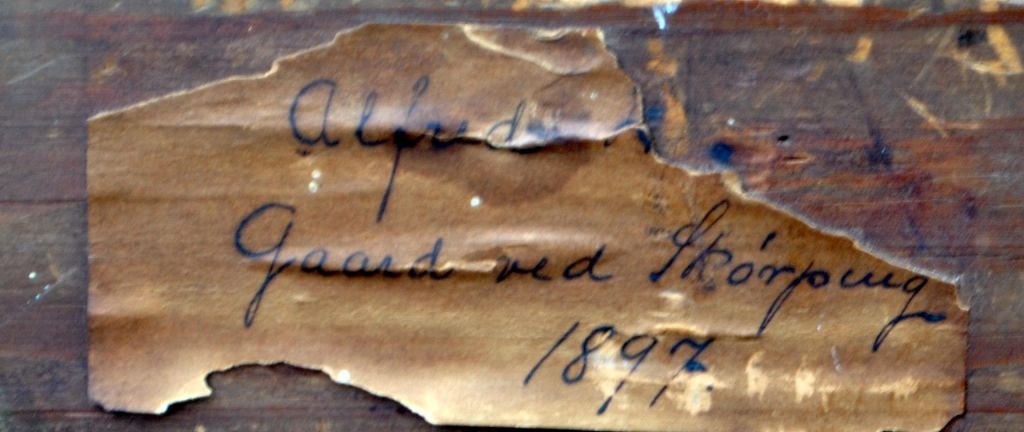 Alfred
Gaard ved Skórping
1897